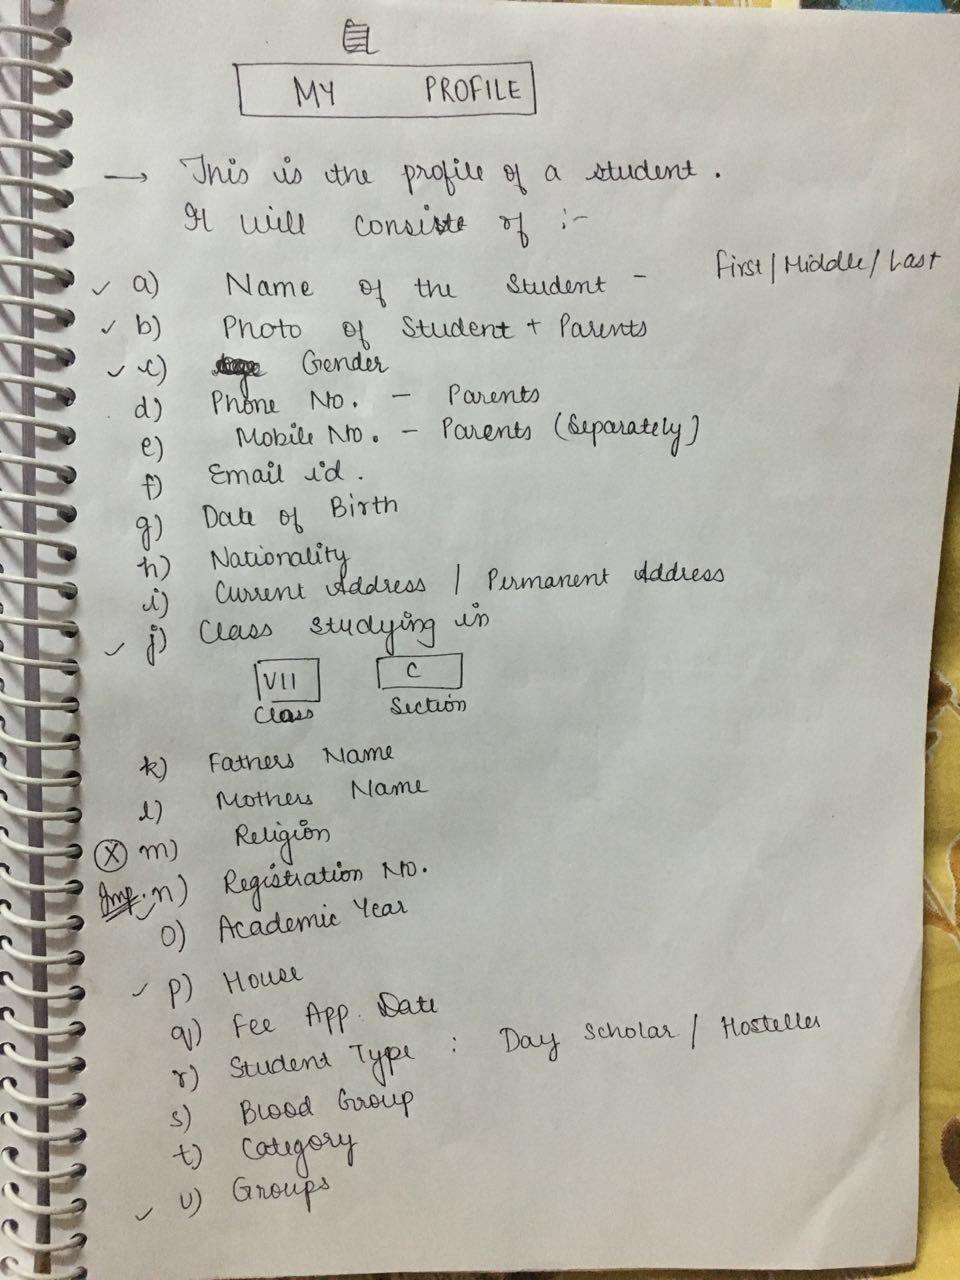 MY PROFILE
→ This is the profile of a student.
It will consiste of :-
✓ a) Name of the Student - First / Middle / Last
✓ b) Photo of Student + Parents
✓ c) Gender
d) Phone No. - Parents
e) Mobile No. - Parents (Separately)
f) Email id.
g) Date of Birth
h) Nationality
i) Current Address / Permanent Address
✓ j) Class studying in
VII C
Class Section
k) Fathers Name
l) Mothers Name
Ⓧ m) Religion
Imp. ✓ n) Registration No.
o) Academic Year
✓ p) House
q) Fee App. Date
r) Student Type : Day Scholar / Hosteller
s) Blood Group
t) Category
✓ u) Groups